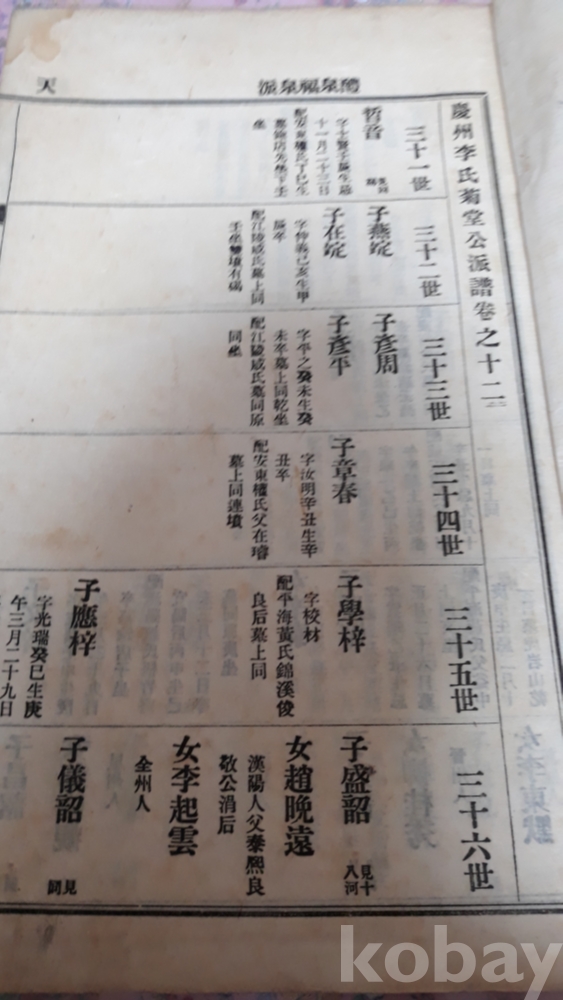 慶州李氏菊堂公派譜卷之十二
醴泉福泉派
天
三十一世
哲音
字士賢壬辰生
十一月二十三日
配安東權氏丁巳生
坐
三十二世
子燕錠
子在錠
字仲義己亥生甲
辰卒
配江陵咸氏墓上同
壬坐雙墳有碣
三十三世
子彥周
子彥平
字平之癸未生癸
未卒墓上同乾坐
配江陵咸氏墓同原
同坐
三十四世
子章春
字汝明辛丑生辛
丑卒
配安東權氏父在璿
墓上同連墳
三十五世
子學梓
字校材
配平海黃氏錦溪俊
良后墓上同
子應梓
字光瑞癸巳生庚
午三月二十九日
三十六世
子盛韶
見十
八河
女趙晩遠
漢陽人父秦熙良
敬公涓后
女李起雲
全州人
子儀韶
見
同
kobay